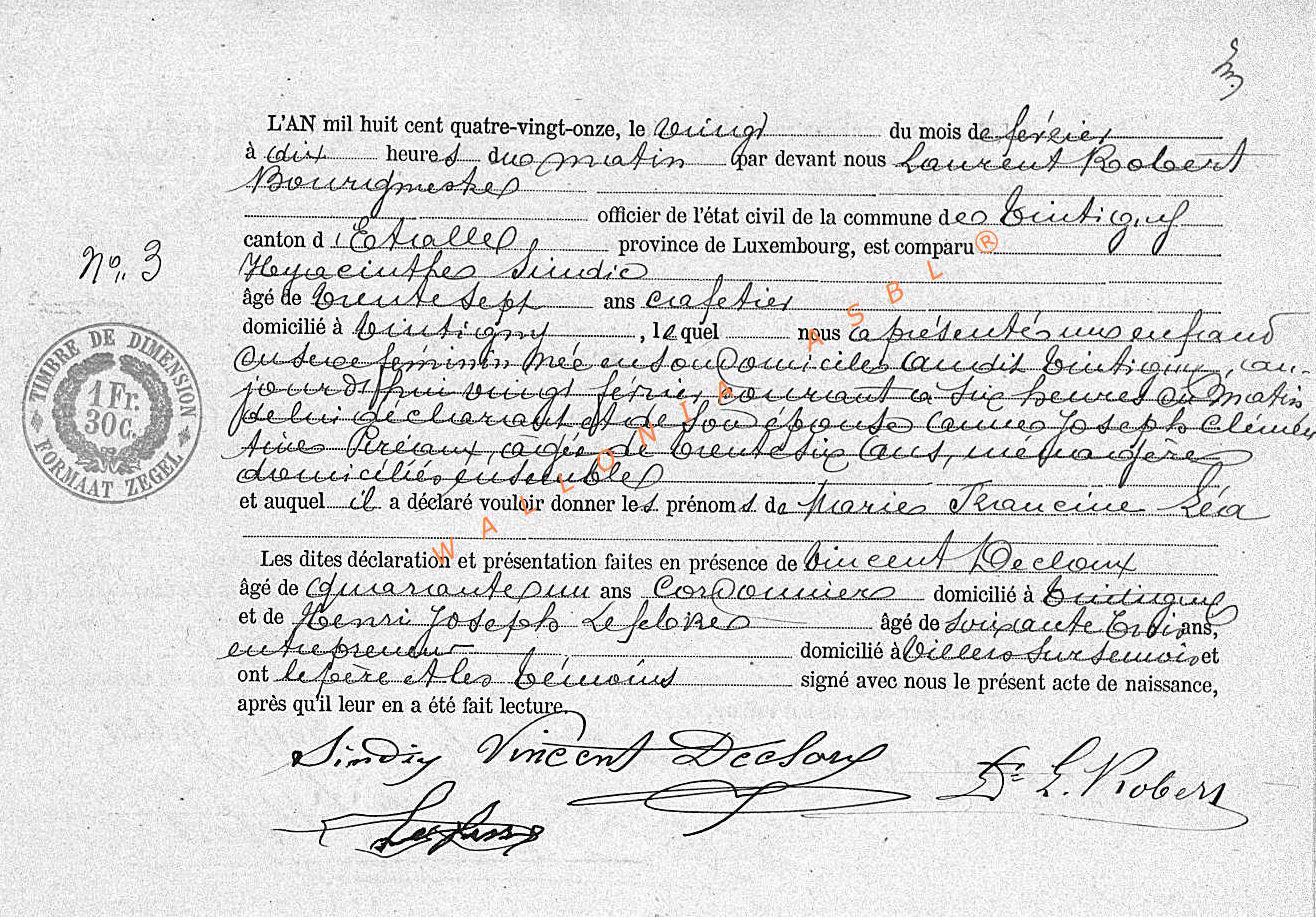 3.
L'AN mil huit cent quatre-vingt-onze, le vingt du mois de février
à dix heures du matin par devant nous Laurent Robert
Bourgmestre
officier de l'état civil de la commune de Tintigny
canton d'Etalle province de Luxembourg, est comparu
Hyacinthe Sindic
No. 3
âgé de trente sept ans cafetier
domicilié à Tintigny, lequel nous a présenté un enfant
du sexe féminin née en son domicile audit Tintigny, au-
jourd'hui vingt février courant à six heures du matin
de lui déclarant et de son épouse Anne Joseph Clémen
tine Préaux, âgée de trente six ans, ménagère
domiciliés ensemble
et auquel il a déclaré vouloir donner les prénoms de Marie Francine Léa
Les dites déclaration et présentation faites en présence de Vincent Decloux
âgé de quarante un ans Cordonnier domicilié à Tintigny
et de Henri Joseph Lefebre âgé de soixante trois ans,
entrepreneur domicilié à Villers sur Semois et
ont le père et les témoins signé avec nous le présent acte de naissance,
après qu'il leur en a été fait lecture.
Vincent Decloux
Dr. L. Robert
TIMBRE DE DIMENSION
1 Fr.
30 C.
FORMAAT ZEGEL
WALLONIA ASBL ®